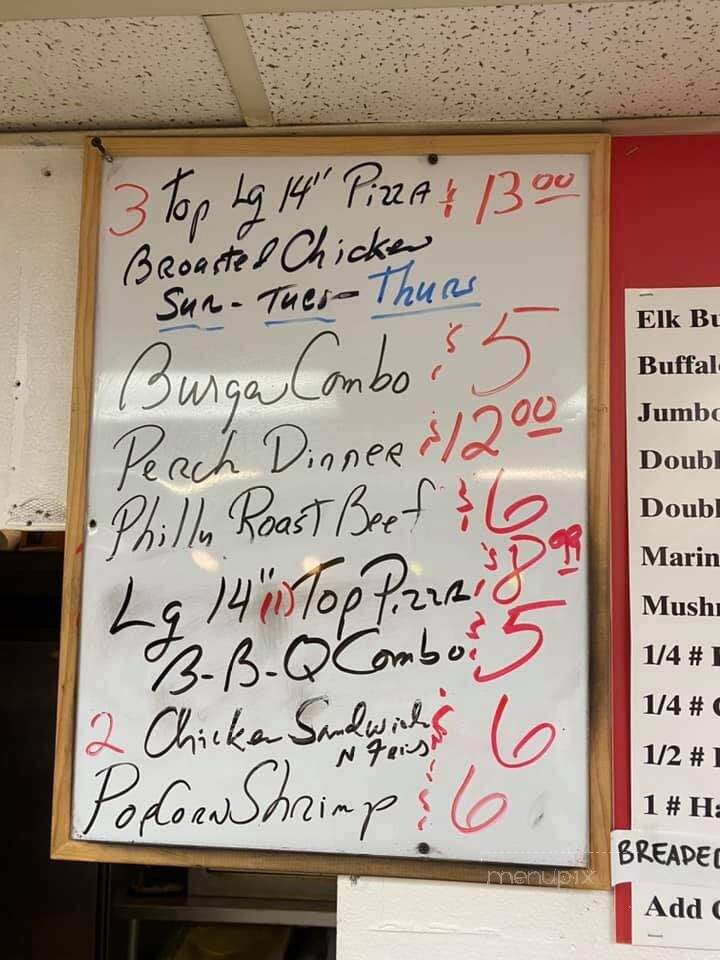 3 Top Lg 14" Pizza $ 13 00
Broasted Chicken
Sun - Tues - Thurs
Burger Combo $ 5
Perch Dinner $ 12 00
Philly Roast Beef $ 6
Lg 14" (1) Top Pizza $ 8 99
B-B-Q Combo $ 5
2 Chicken Sandwich $ 6
N Fries
PopCorn Shrimp $ 6
Elk Bu
Buffal
Jumbo
Doubl
Doubl
Marin
Mushr
1/4 #
1/4 #
1/2 #
1 # Ha
BREADED
Add
menupix